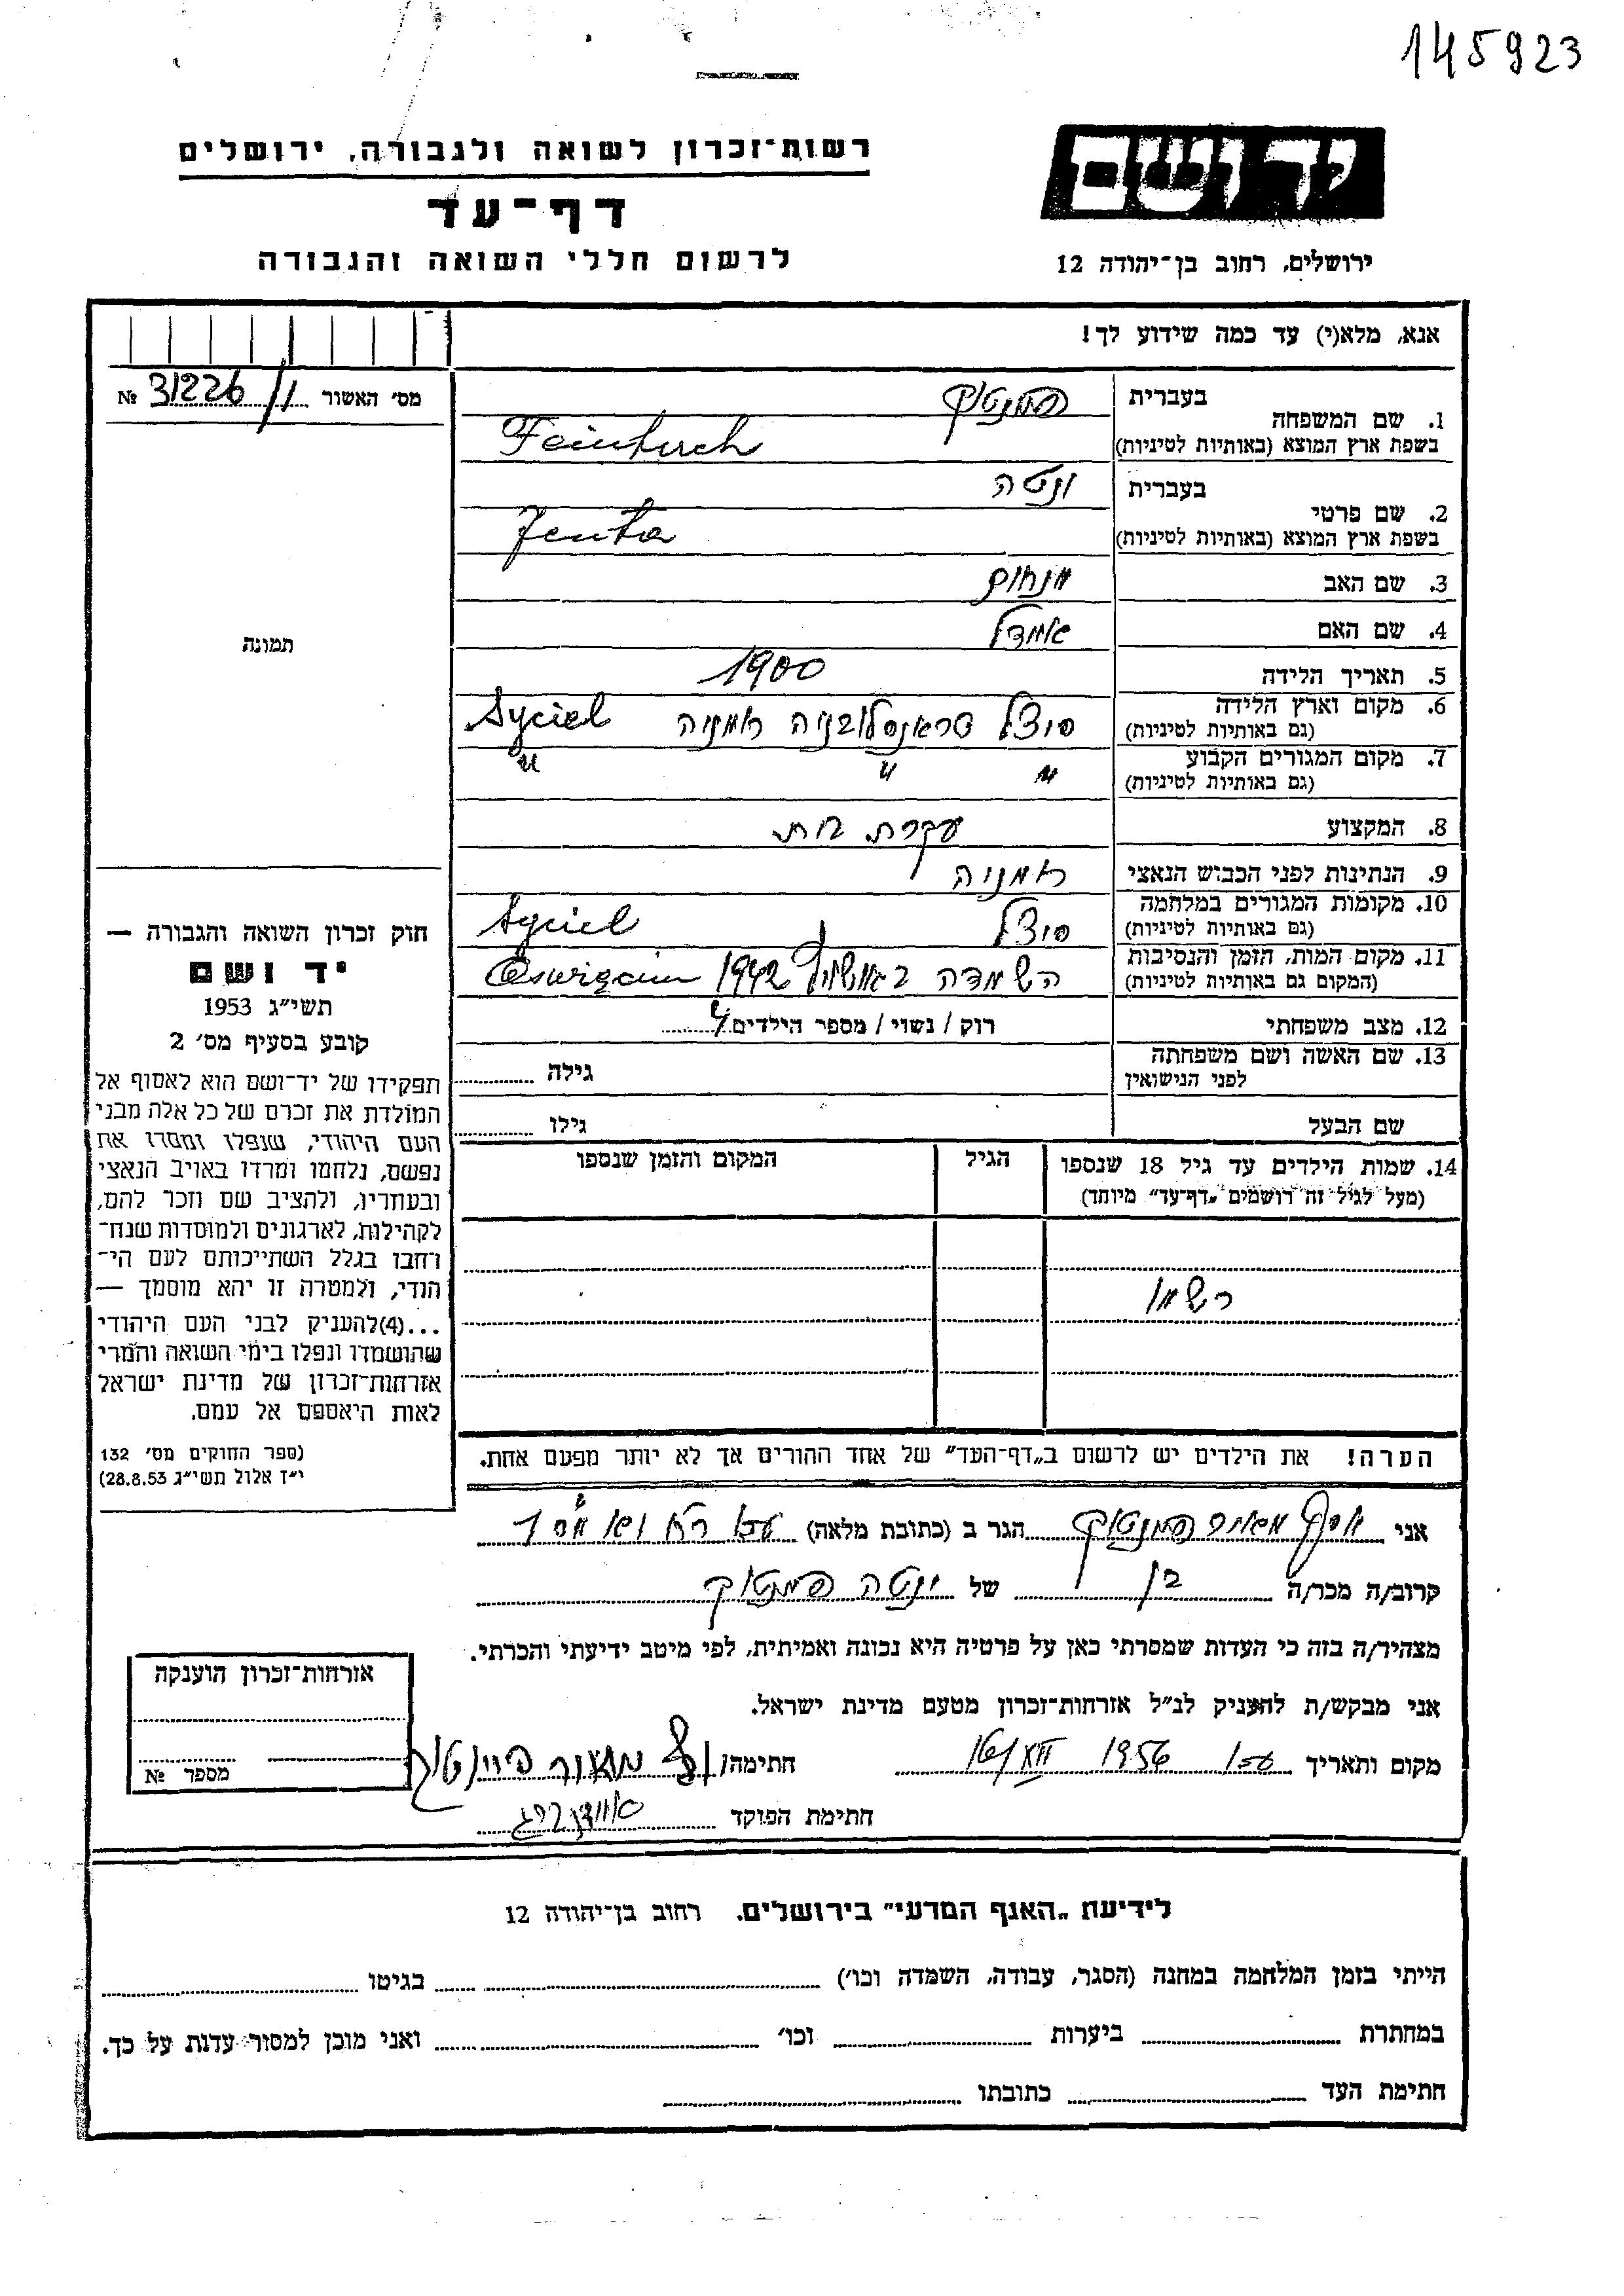 145923
רשות־זכרון לשואה ולגבורה, ירושלים
דף־עד
לרשום חללי השואה והגבורה
יד ושם
ירושלים, רחוב בן־יהודה 12
אנא, מלא(י) עד כמה שידוע לך!
מס׳ האשור 31226/1 №
תמונה
1. שם המשפחה
בעברית
בשפת ארץ המוצא (באותיות לטיניות) Feinturch
2. שם פרטי
בעברית ינטה
בשפת ארץ המוצא (באותיות לטיניות) Jenta
3. שם האב מנחום
4. שם האם
5. תאריך הלידה 1900
6. מקום וארץ הלידה
(גם באותיות לטיניות) סוצל טראנסלובניה רומניה Syciel
7. מקום המגורים הקבוע
(גם באותיות לטיניות) " " "
8. המקצוע עקרת בית
9. הנתינות לפני הכבוש הנאצי רומניה
10. מקומות המגורים במלחמה
(גם באותיות לטיניות) סוצל Syciel
11. מקום המות, הזמן והנסיבות
(המקום גם באותיות לטיניות) השמדה באושויץ 1942
12. מצב משפחתי רוק / נשוי / מספר הילדים 4
13. שם האשה ושם משפחתה
לפני הנישואין גילה
שם הבעל גילו
14. שמות הילדים עד גיל 18 שנספו
(מעל לגיל זה רושמים „דף־עד״ מיוחד)
הגיל
המקום והזמן שנספו
רשמו
הערה! את הילדים יש לרשום ב„דף־העד״ של אחד ההורים אך לא יותר מפעם אחת.
חוק זכרון השואה והגבורה —
יד ושם
תשי״ג 1953
קובע בסעיף מס׳ 2
תפקידו של יד־ושם הוא לאסוף אל
המולדת את זכרם של כל אלה מבני
העם היהודי, שנפלו ומסרו את
נפשם, נלחמו ומרדו באויב הנאצי
ובעוזריו, ולהציב שם וזכר להם,
לקהילות, לארגונים ולמוסדות שנח־
רבו בגלל השתייכותם לעם הי־
הודי, ולמטרה זו יהא מוסמך —
...(4)להעניק לבני העם היהודי
שהושמדו ונפלו בימי השואה והמרי
אזרחות־זכרון של מדינת ישראל
לאות היאספם אל עמם.
(ספר החוקים מס׳ 132
י״ז אלול תשי״ג 28.8.53)
אני הגר ב (כתובת מלאה)
קרוב/ה מכר/ה בן של ינטה
מצהיר/ה בזה כי העדות שמסרתי כאן על פרטיה היא נכונה ואמיתית, לפי מיטב ידיעתי והכרתי.
אני מבקש/ת להעניק לנ״ל אזרחות־זכרון מטעם מדינת ישראל.
מקום ותאריך 1956 חתימה
חתימת הפוקד
אזרחות־זכרון הוענקה
מספר №
לידיעת „האגף המדעי״ בירושלים. רחוב בן־יהודה 12
הייתי בזמן המלחמה במחנה (הסגר, עבודה, השמדה וכו׳) בגיטו
במחתרת ביערות וכו׳ ואני מוכן למסור עדות על כך.
חתימת העד כתובתו